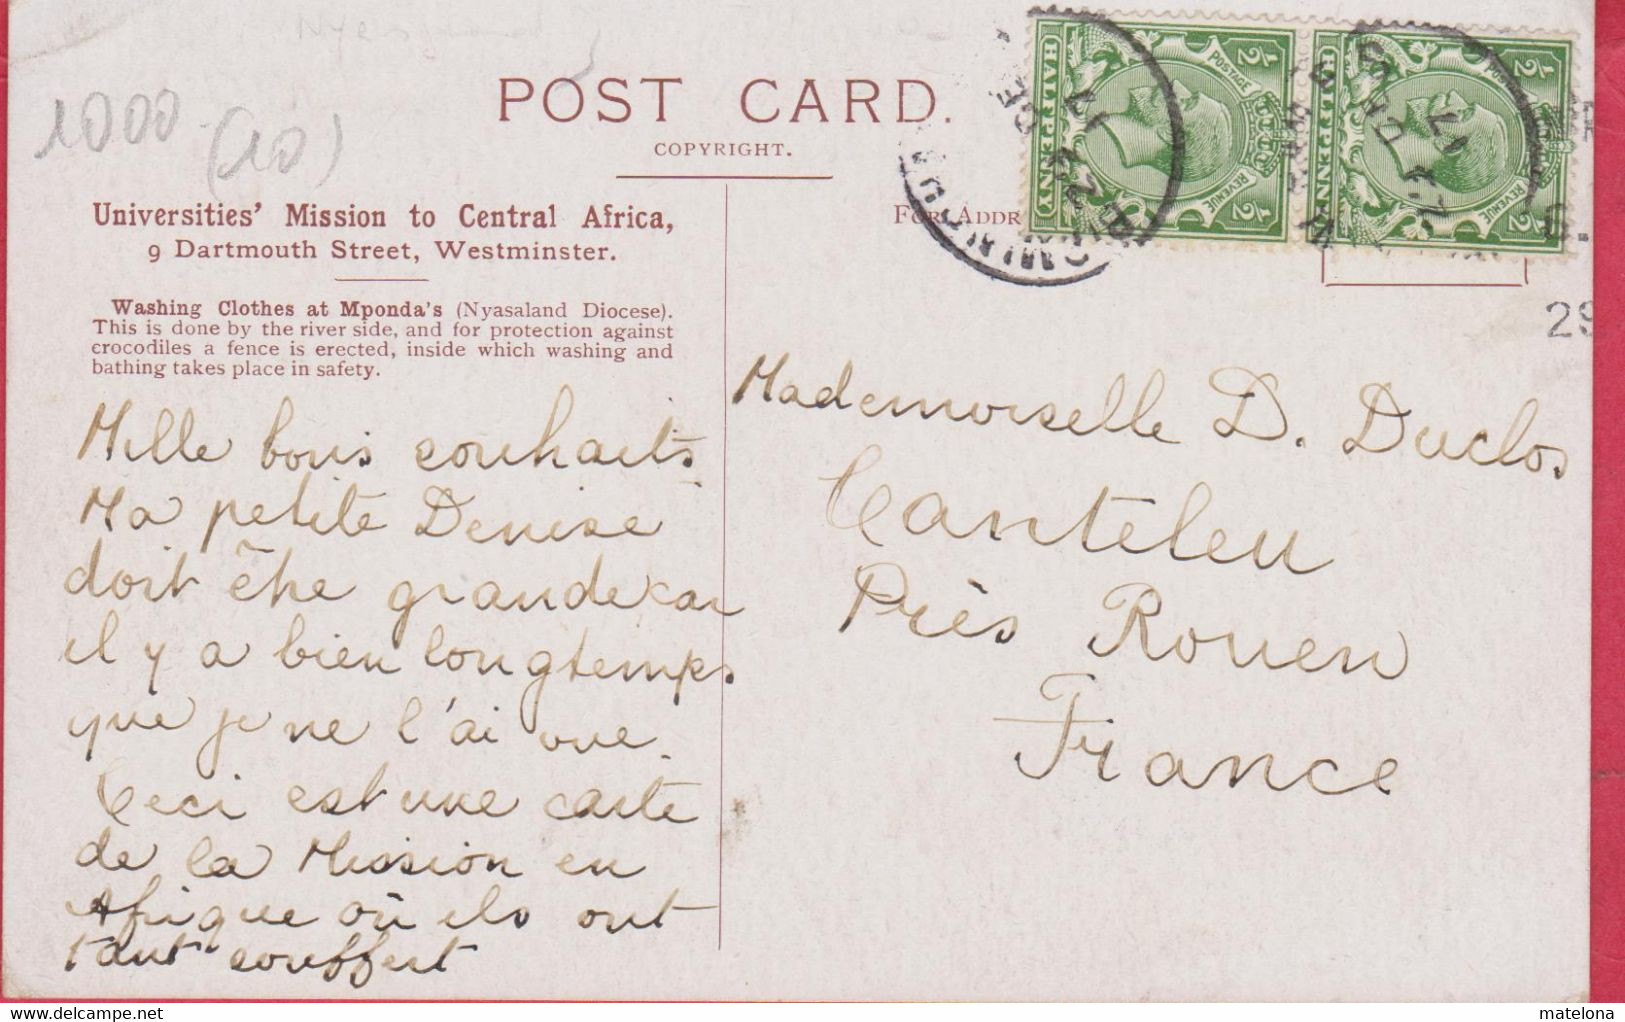 1000 (10)
POST CARD.
COPYRIGHT.
Universities' Mission to Central Africa,
9 Dartmouth Street, Westminster.
Washing Clothes at Mponda's (Nyasaland Diocese).
This is done by the river side, and for protection against
crocodiles a fence is erected, inside which washing and
bathing takes place in safety.
FOR ADDR
POSTAGE
REVENUE
½ ½
HALFPENNY
POSTAGE
REVENUE
½ ½
HALFPENNY
29
Mille bons souhaits
Ma petite Denise
doit être grande car
il y a bien longtemps
que je ne l'ai vue.
Ceci est une carte
de la Mission en
Afrique où ils ont
tant souffert
Mademoiselle D. Duclos
Canteleu
Près Rouen
France
www.delcampe.net
matelona